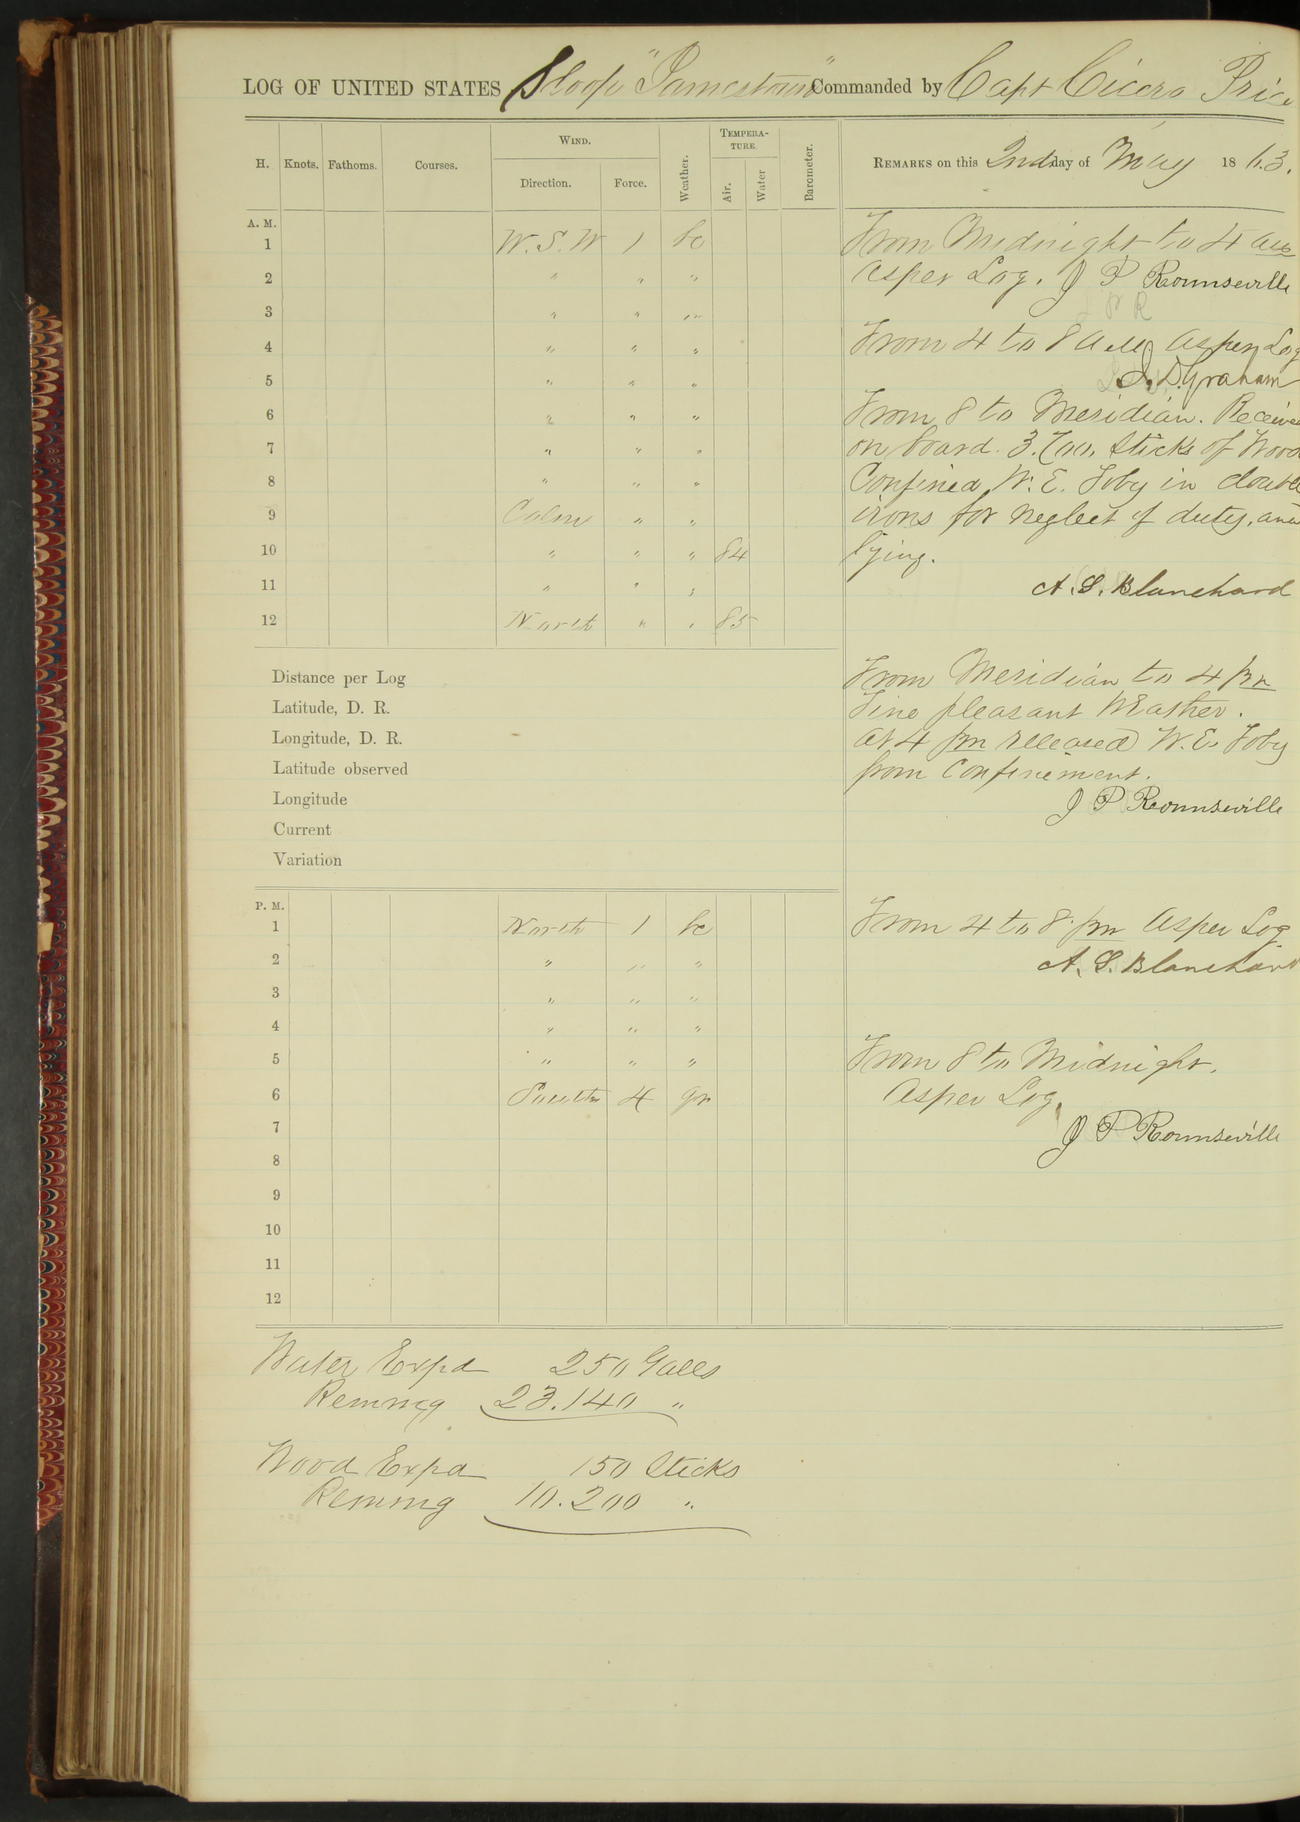 LOG OF UNITED STATES Sloop "Jamestown" Commanded by Capt Cicero Price
H. Knots. Fathoms. Courses. WIND. Direction. Force. Weather. TEMPERA-TURE. Air. Water Barometer. REMARKS on this 2nd day of May 1863.
A. M.
1 W.S.W 1 bc From Midnight to 4 am
2 " " " As per Log. J P Rounseville
3 " " "
4 " " " From 4 to 8 AM as per Log
5 " " " L. D. Graham
6 " " " From 8 to Meridian. Receive
7 " " " on board 3.700. Sticks of Wood
8 " " " Confined W. E. Toby in double
9 Calm " " irons for neglect of duty, and
10 " " " 84 lying.
11 " " " A. S. Blanchard
12 North " " 85
Distance per Log From Meridian to 4 pm
Latitude, D. R. Fine pleasant Weather.
Longitude, D. R. At 4 pm released W. E. Toby
Latitude observed from Confinement.
Longitude J P Rounseville
Current
Variation
P. M.
1 North 1 bc From 4 to 8 pm As per Log
2 " " " A. S. Blanchard
3 " " "
4 " " "
5 " " " From 8 to Midnight.
6 South 4 qr As per Log.
7 J P Rounseville
8
9
10
11
12
Water Expd 250 Galls
Remng 23.140 "
Wood Expd 150 Sticks
Remng 10.200 "